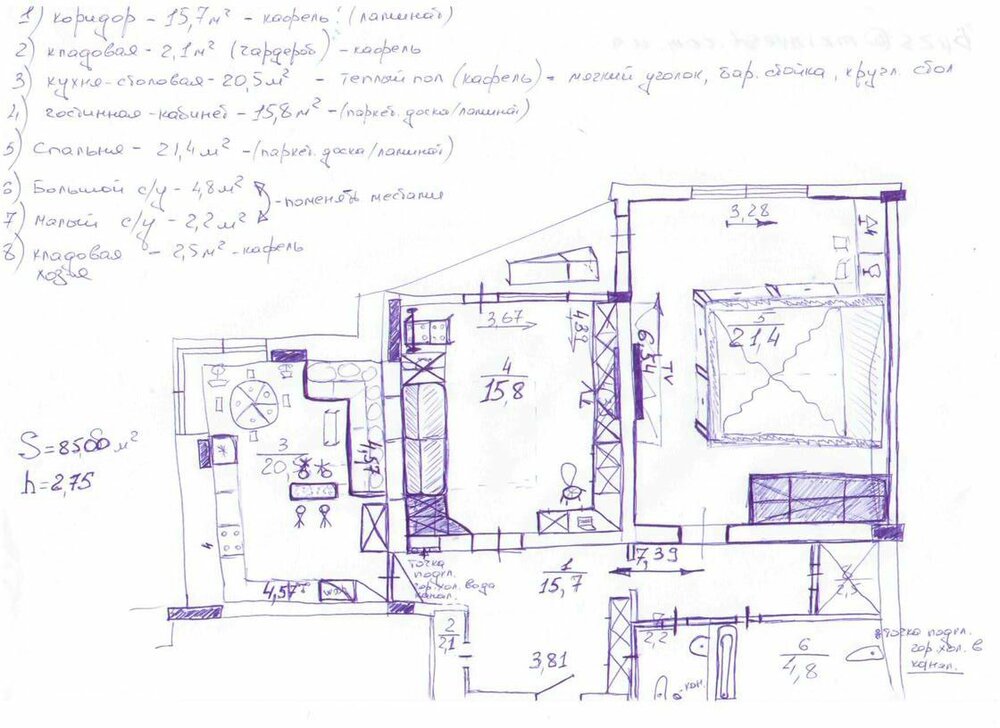 1) коридор - 15,7м² - кафель! (ламинат)
2) кладовая - 2,1м² (гардероб) - кафель
3) кухня-столовая - 20,5м² - теплый пол (кафель) = мягкий уголок, бар. стойка, кругл. стол
4) гостинная-кабинет - 15,8м² - (паркет. доска/ламинат)
5) спальня - 21,4м² - (паркет. доска/ламинат)
6) Большой с/у - 4,8м²
- поменять местами
7) малый с/у - 2,2м²
8) кладовая - 2,5м² - кафель
хозяя
3,28
3,67
4,39
6,54
TV
5
21,4
4
15,8
S=85,00 м²
h=2,75
3
20,5
4,57
4
4,57
точка
подкл.
гор.хол. вода
канал.
1
15,7
7,39
8
2,5
2
2,1
3,81
2,2
6
4,8
кон.
точка подкл.
гор.хол. в
канал.